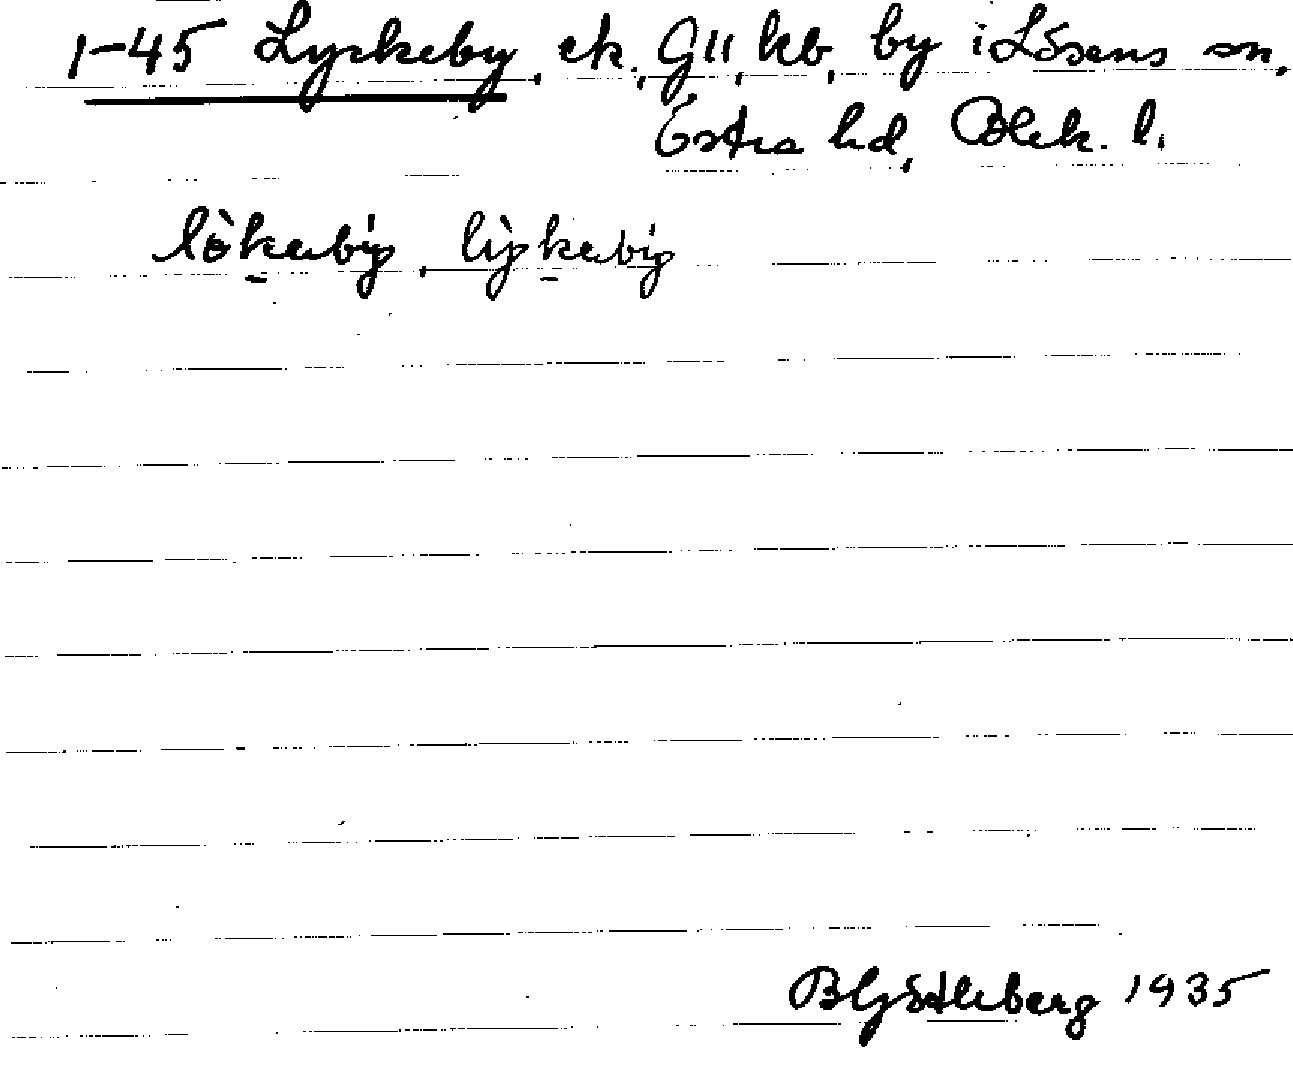 1-45 Lyckeby, ek., GII, kb, by i Lösens sn,
Östra hd, Blek. l.
lö̀kebyg, lỳkebyg
B Göthberg 1935